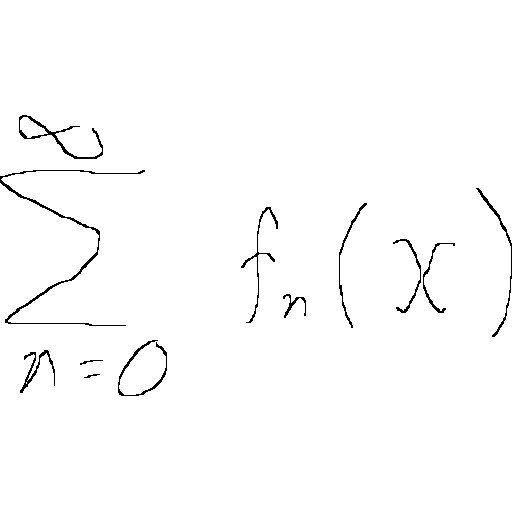 \sum_{n=0}^{\infty} f_n(x)